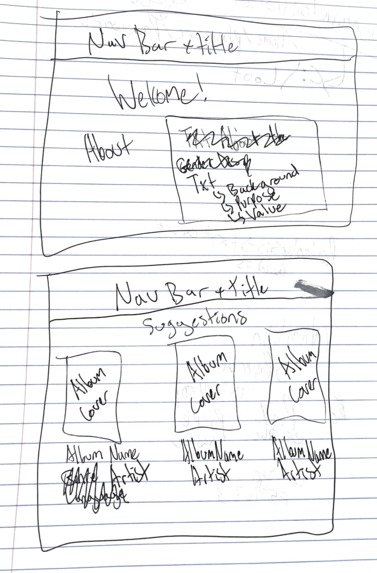 Nav Bar + title
Welcome!
About
Txt
↳ Background
↳ Purpose
↳ Value
Nav Bar + title
Suggestions
Album Cover
Album Cover
Album Cover
Album Name
Artist
Album Name
Artist
Album Name
Artist